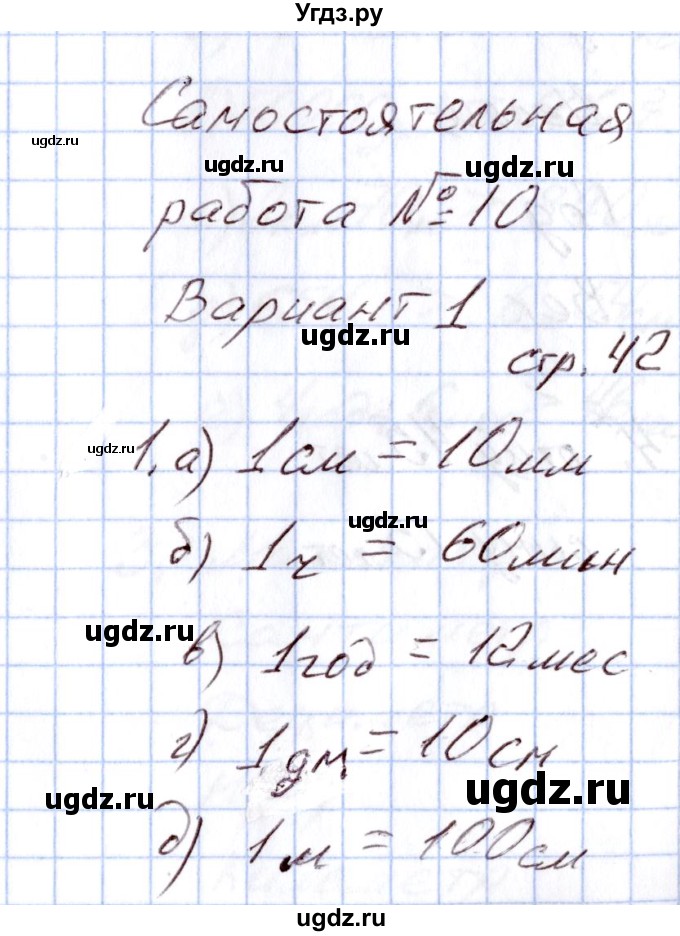 Угдз.ру
Самостоятельная
ugdz.ru
ugdz.ru
ugdz.ru
работа №10
Вариант 1
ugdz.ru
стр. 42
ugdz.ru
1. а) 1 см = 10 мм
ugdz.ru
б) 1 ч = 60 мин
ugdz.ru
в) 1 год = 12 мес
г) 1 дм = 10 см
ugdz.ru
ugdz.ru
д) 1 м = 100 см
ugdz.ru